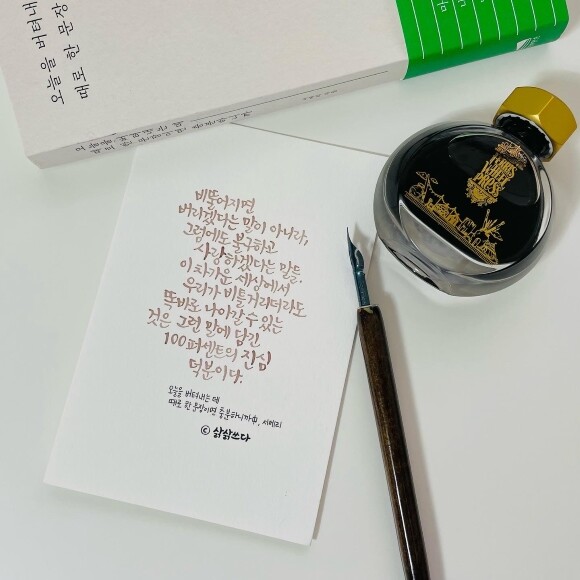 오늘을 버텨내
때로 한 문장
비뚤어지면
버리겠다는 말이 아니라,
그럼에도 불구하고
사랑하겠다는 말들.
이 차가운 세상에서
우리가 비틀거리더라도
똑바로 나아갈 수 있는
것은 그런 말에 담긴
100퍼센트의 진심
덕분이다.
오늘을 버텨내는 데
때로 한 문장이면 충분하니까中, 서메리
© 삵삵쓰다